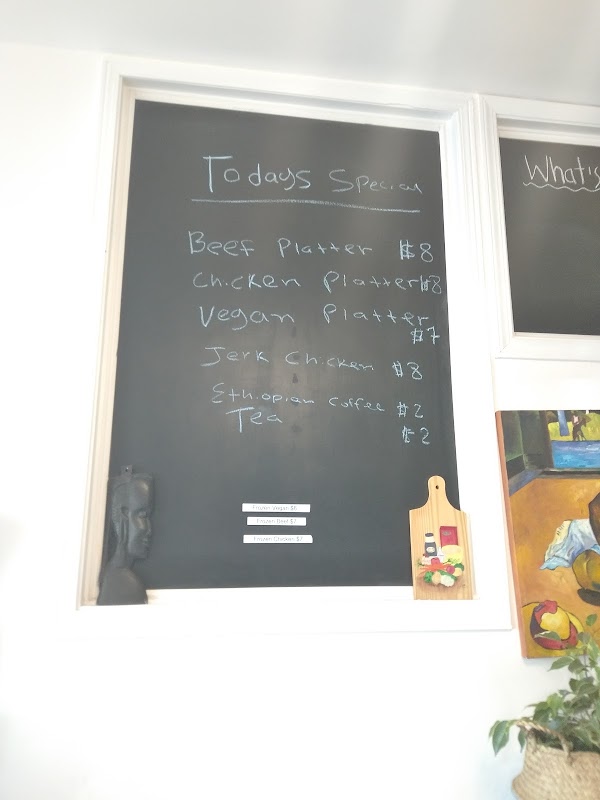 Todays Special
Beef Platter $8
Chicken Platter $8
Vegan Platter
$7
Jerk Chicken $8
Ethiopian Coffee $2
Tea $2
Frozen Vegan $6
Frozen Beef $7
Frozen Chicken $7
What's